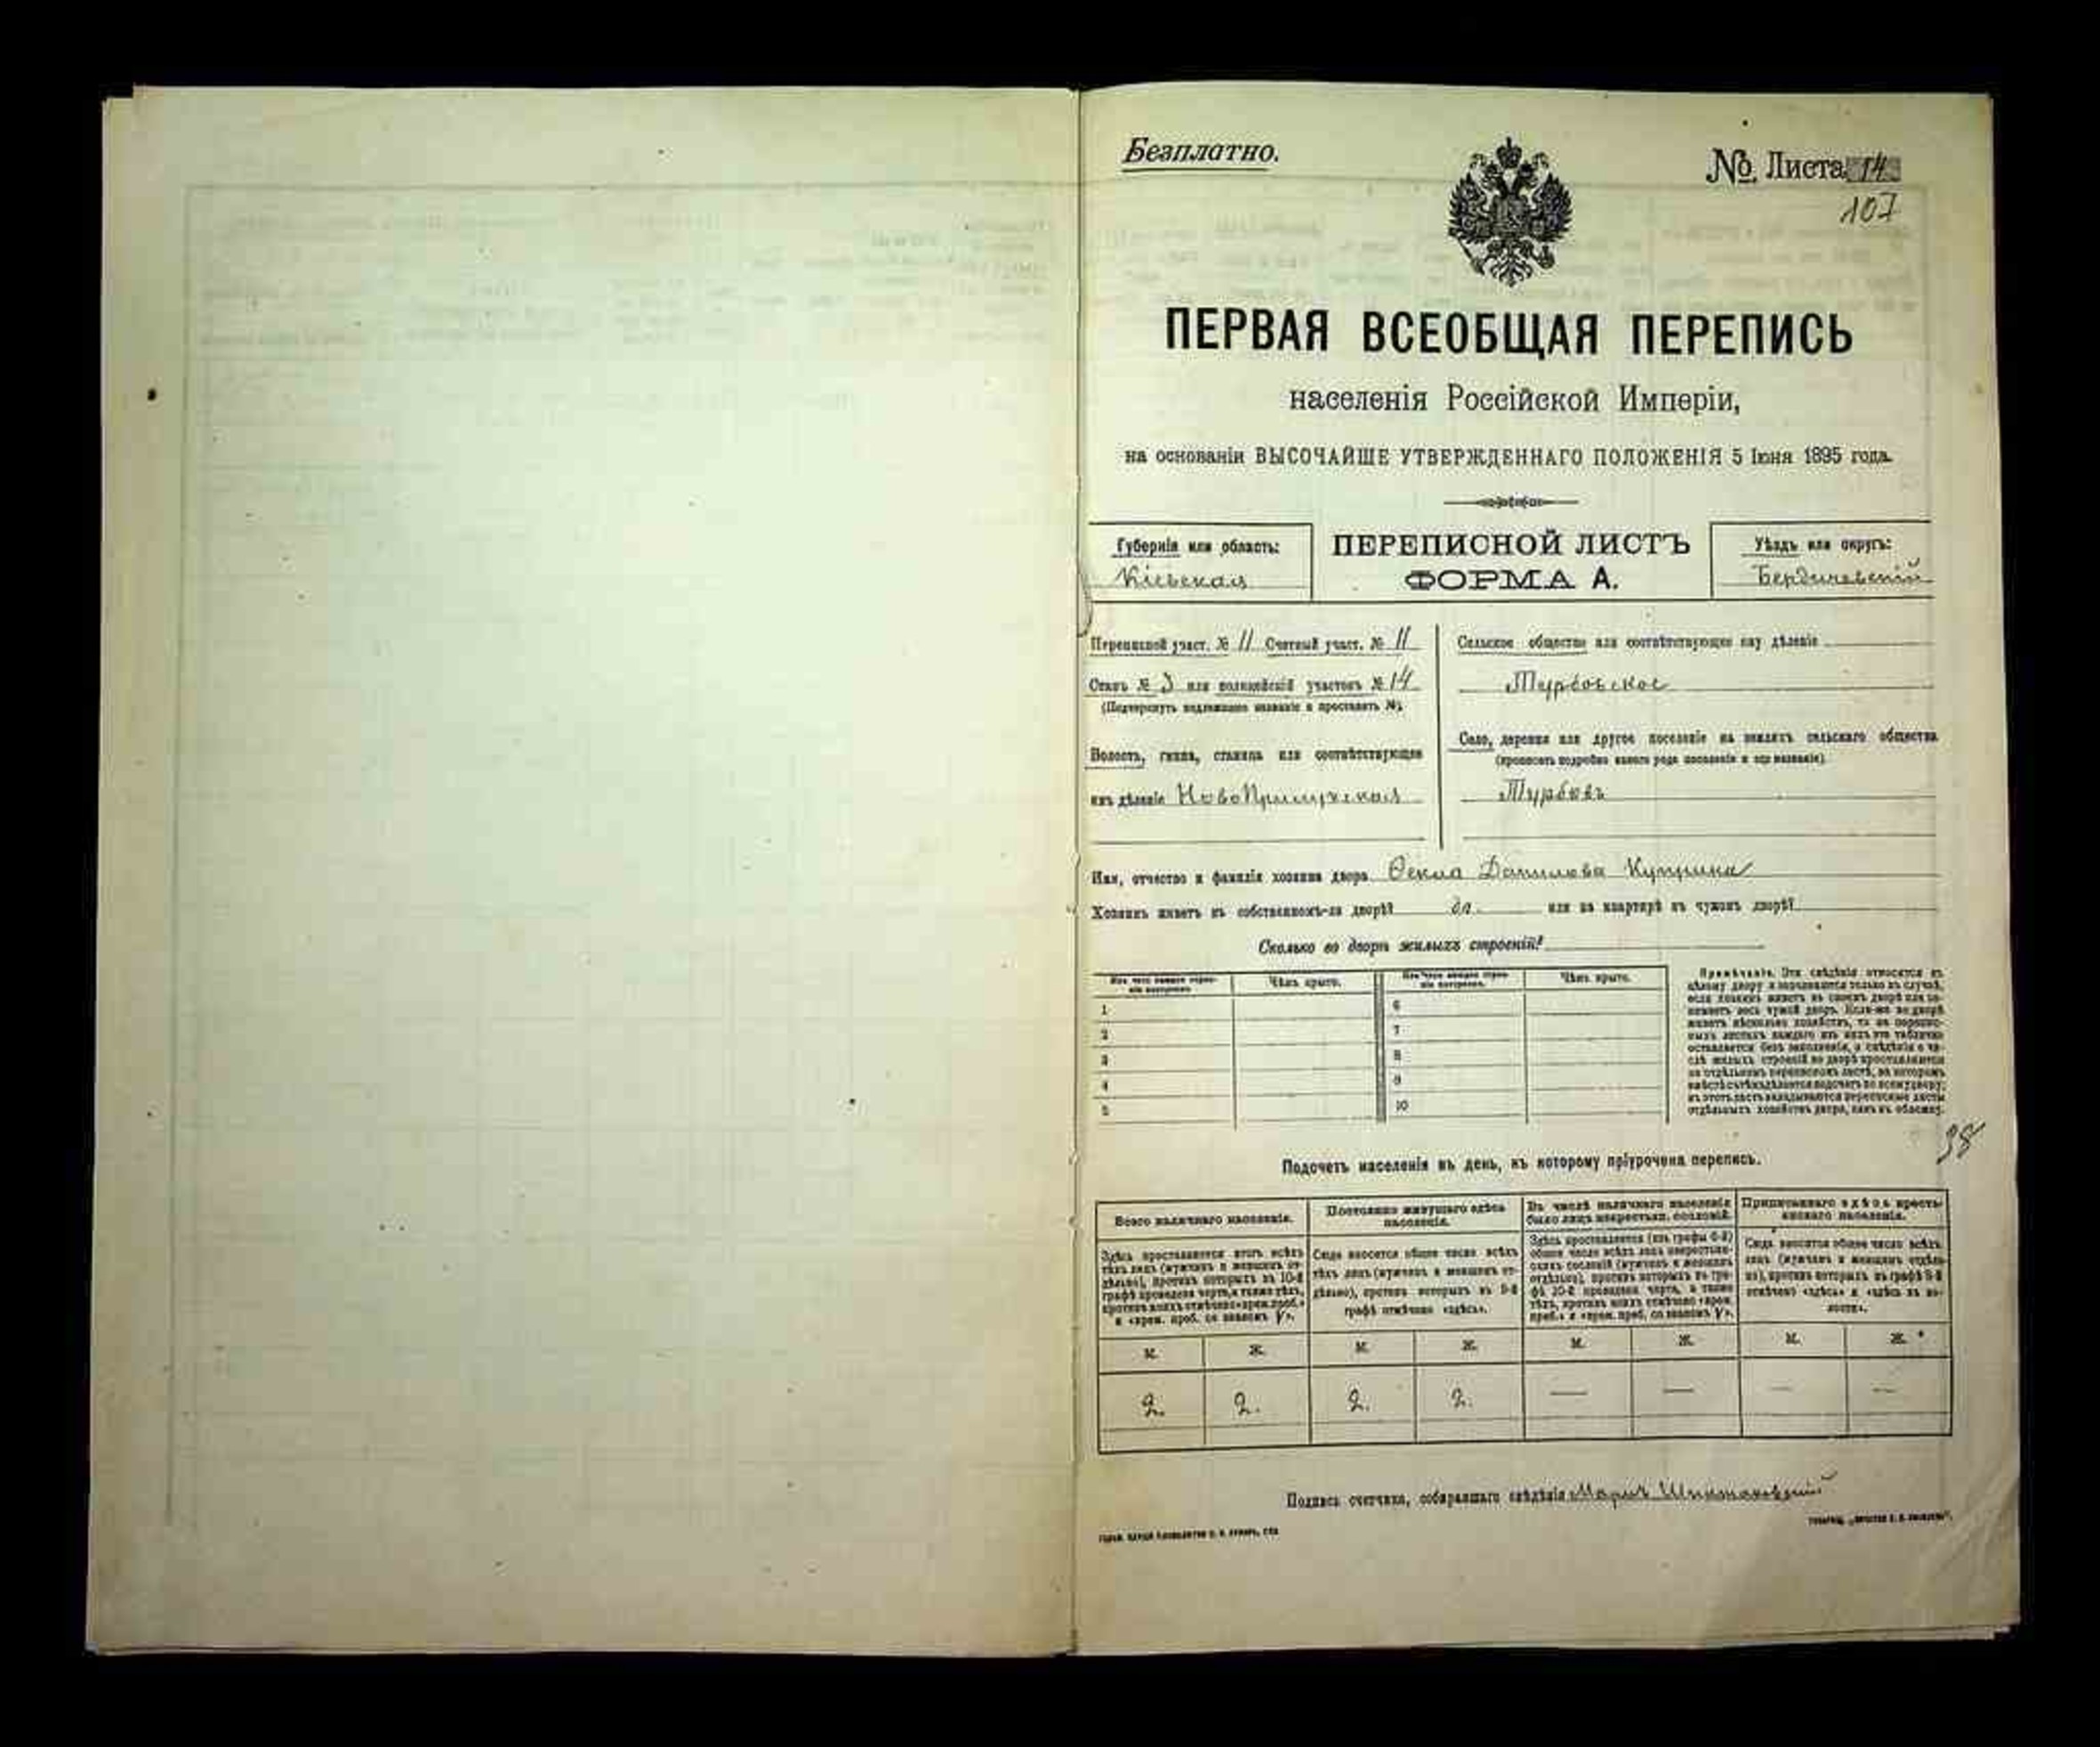 Безплатно.
№ Листа 14
107
ПЕРВАЯ ВСЕОБЩАЯ ПЕРЕПИСЬ
населенія Россійской Имперіи,
на основаніи ВЫСОЧАЙШЕ УТВЕРЖДЕННАГО ПОЛОЖЕНІЯ 5 Іюня 1895 года.
Губернія или область:
Кіевская
ПЕРЕПИСНОЙ ЛИСТЪ
ФОРМА А.
Уѣздъ или округъ:
Бердичевскій
Переписной участ. № 11 Счетный участ. № 11
Станъ № 3 или полицейскій участокъ № 14
(Подчеркнуть надлежащее названіе и проставить №)
Волость, гмина, станица или соотвѣтствующее
имъ дѣленіе НовоПрилукская
Сельское общество или соотвѣтствующее ему дѣленіе
Турбовское
Село, деревня или другое поселеніе на земляхъ сельскаго общества
(прописать подробно какого рода поселеніе и его названіе)
Турбовъ
Имя, отчество и фамилія хозяина двора Ѳекла Данилова
Хозяинъ живетъ въ собственномъ-ли дворѣ? да. или на квартирѣ въ чужомъ дворѣ?
Сколько во дворѣ жилыхъ строеній?
Изъ чего каждое строеніе построено.
Чѣмъ крыто.
Изъ чего каждое строеніе построено.
Чѣмъ крыто.
1 6
2 7
3 8
4 9
5 10
Примѣчаніе. Эти свѣдѣнія относятся къ
цѣлому двору и заполняются только въ случаѣ,
если хозяинъ живетъ въ своемъ дворѣ или за-
нимаетъ весь чужой дворъ. Если-же во дворѣ
живетъ нѣсколько хозяйствъ, то на перепис-
ныхъ листахъ каждаго изъ нихъ эта табличка
оставляется безъ заполненія, а свѣдѣнія о чи-
слѣ жилыхъ строеній во дворѣ проставляются
на отдѣльномъ переписномъ листѣ, на которомъ
вмѣстѣ съ тѣмъ дѣлается подсчетъ по всему двору;
въ этотъ листъ вкладываются переписные листы
отдѣльныхъ хозяйствъ двора, какъ въ обложку.
38
Подсчетъ населенія въ день, къ которому пріурочена перепись.
Всего наличнаго населенія.
Здѣсь проставляется итогъ всѣхъ
тѣхъ лицъ (мужчинъ и женщинъ от-
дѣльно), противъ которыхъ въ 10-й
графѣ проведена черта, а также тѣхъ,
противъ коихъ отмѣчено «врем. проб.»
и «врем. проб. со знакомъ V».
Постоянно живущаго здѣсь
населенія.
Сюда вносится общее число всѣхъ
тѣхъ лицъ (мужчинъ и женщинъ от-
дѣльно), противъ которыхъ въ 9-й
графѣ отмѣчено «здѣсь».
Въ числѣ наличнаго населенія
было лицъ некрестьян. сословій.
Здѣсь проставляется (изъ графы 6-й)
общее число всѣхъ лицъ некрестьян-
скихъ сословій (мужчинъ и женщинъ
отдѣльно), противъ которыхъ въ гра-
фѣ 10-й проведена черта, а также
тѣхъ, противъ коихъ отмѣчено «врем.
проб.» и «врем. проб. со знакомъ V».
Приписаннаго здѣсь кресть-
янскаго населенія.
Сюда вносится общее число всѣхъ
лицъ (мужчинъ и женщинъ отдѣль-
но), противъ которыхъ въ графѣ 8-й
отмѣчено «здѣсь» и «здѣсь въ во-
лости».
М. Ж. М. Ж. М. Ж. М. Ж.
2. 2. 2. 2. — — — —
Подпись счетчика, собиравшаго свѣдѣнія